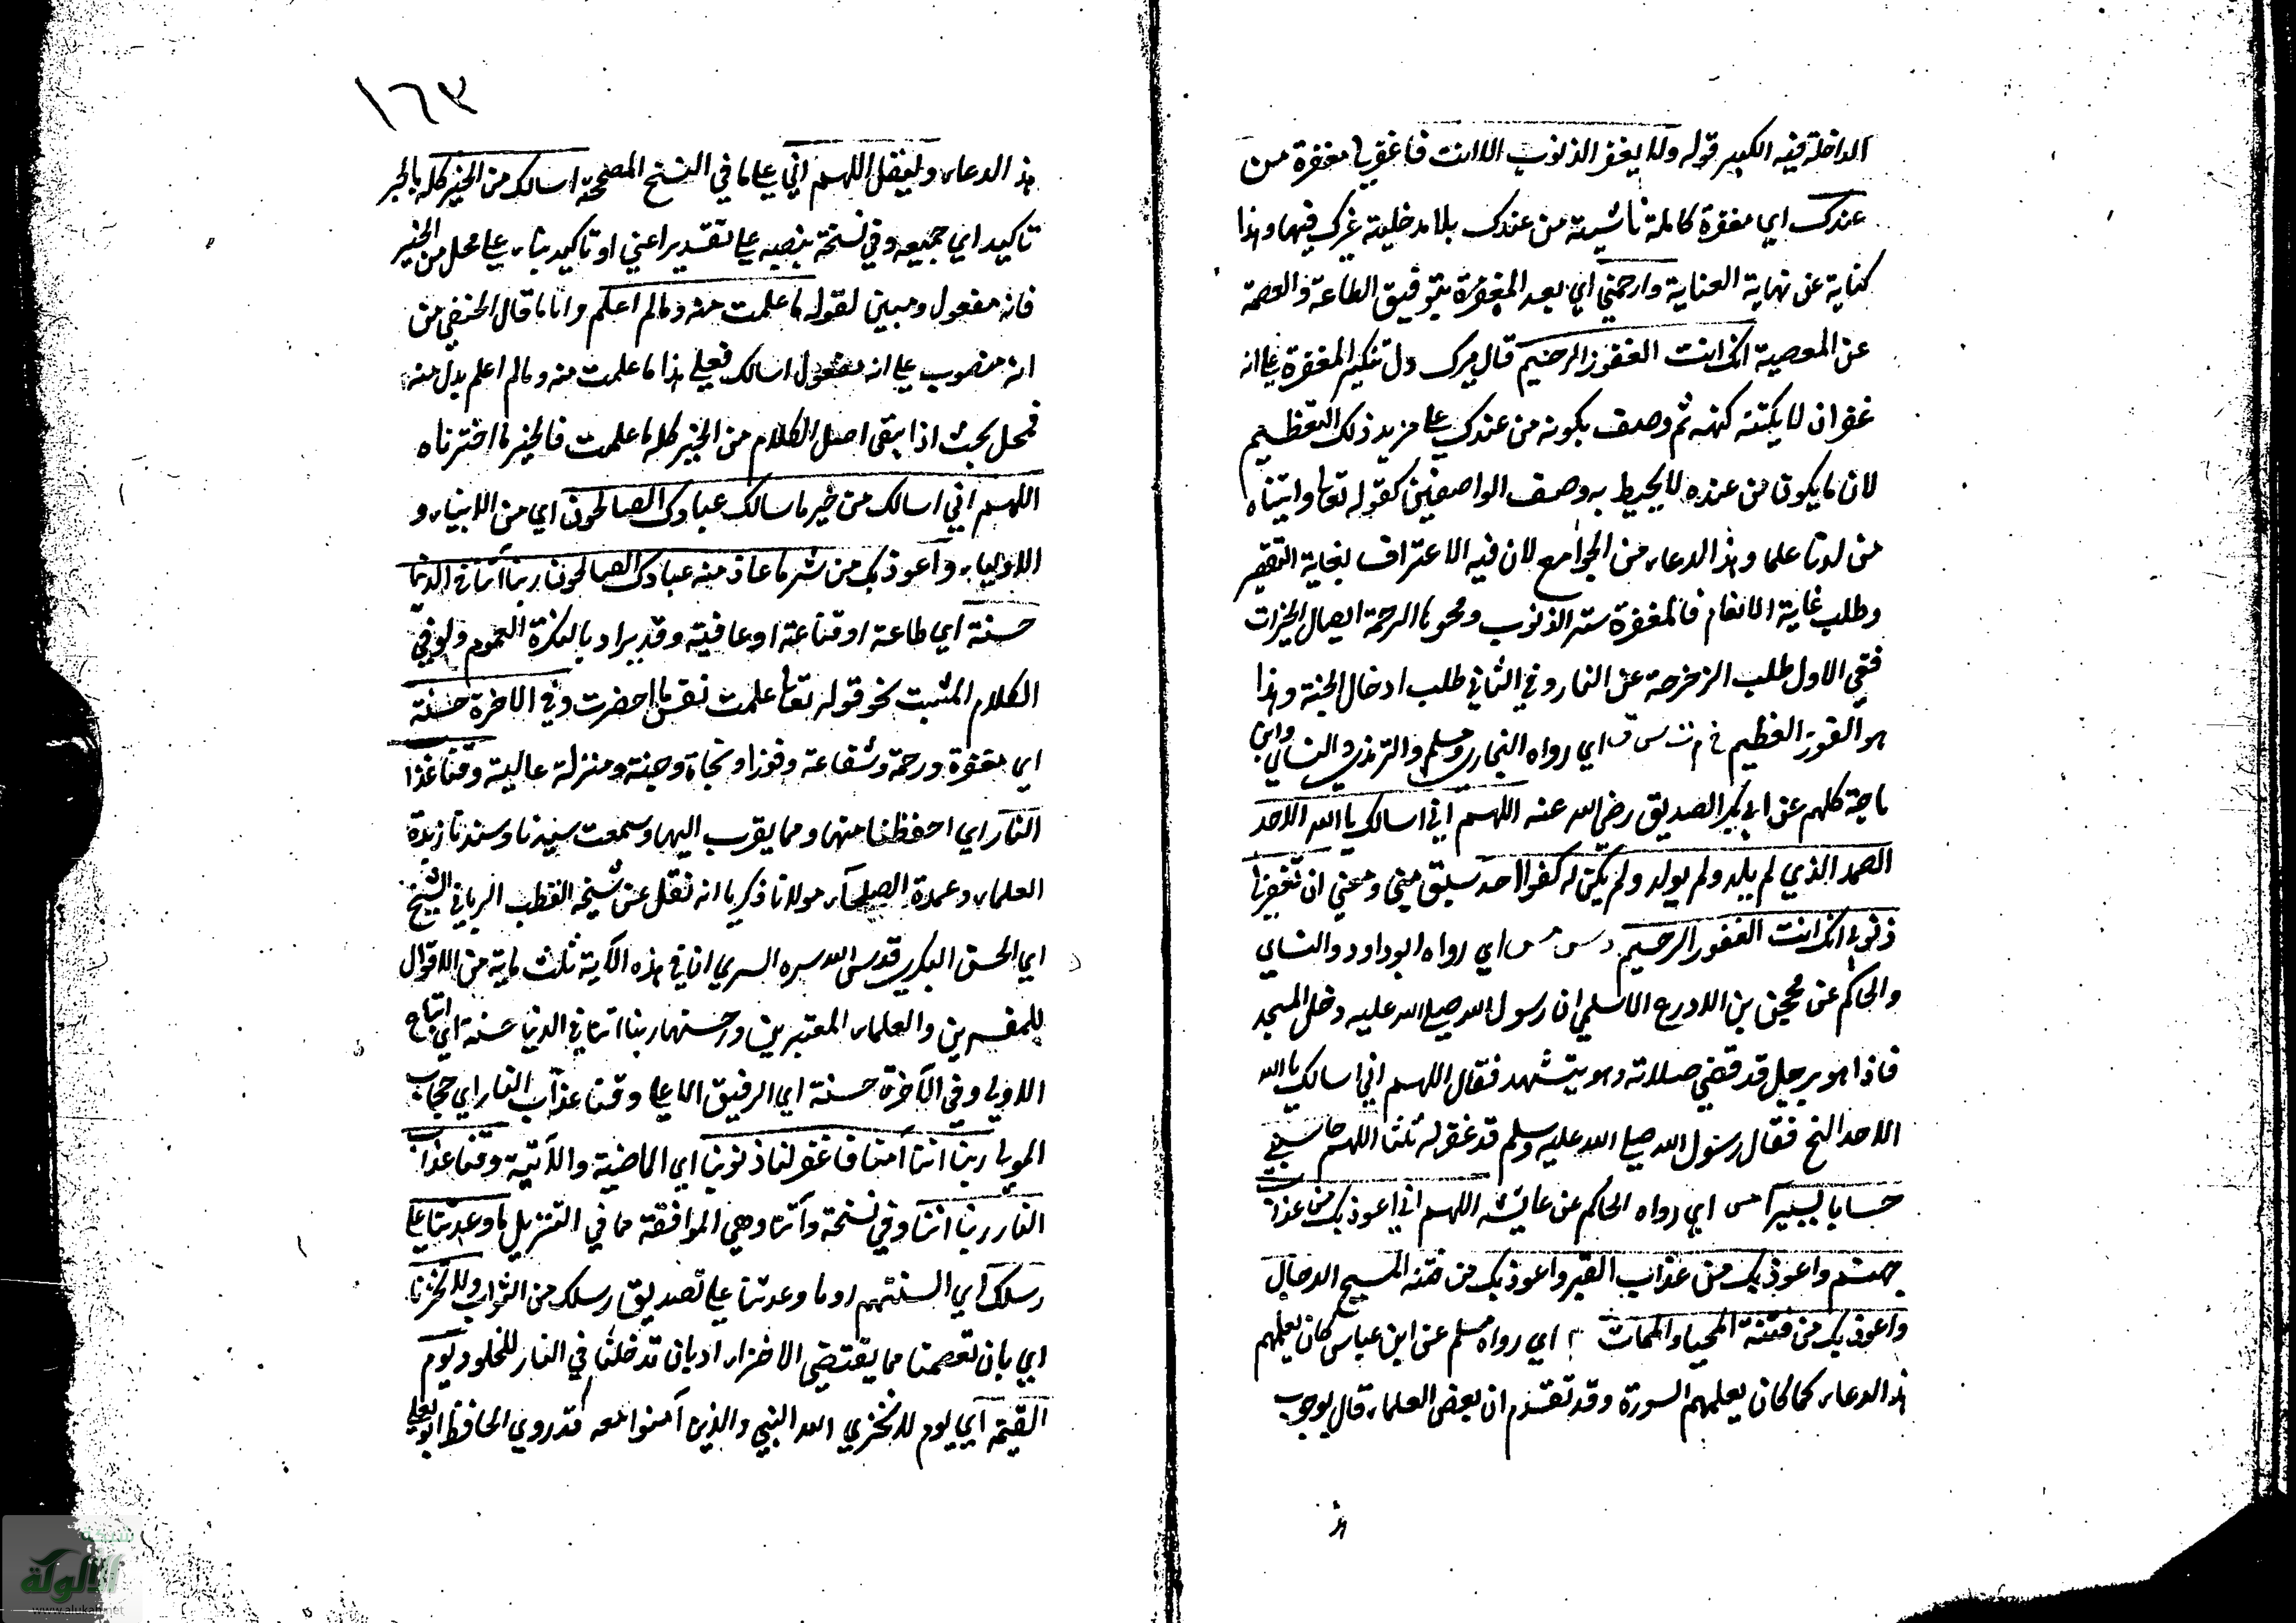 الداخلة فيه الكبير قوله ولا يغفر الذنوب الا انت فاغفر لي مغفرة من
عندك اي مغفرة كاملة ناشية من عندك بلا مدخلية غيرك فيها وهذا
كناية عن نهاية العناية وارحمني اي بعد المغفرة بتوفيق الطاعة والعصمة
عن المعصية انك انت الغفور الرحيم قال ميرك دل تنكير المغفرة علي انه
غفران لا يكتنه كنهه ثم وصف بكونه من عندك علي مزيد ذلك التعظيم
لان ما يكون من عنده لا يحيط به وصف الواصفين كقوله تعالى واتيناه
من لدنا علما وهذا الدعاء من الجوامع لان فيه الاعتراف بغاية التقصير
وطلب غاية الانعام فالمغفرة ستر الذنوب ومحوها الرحمة ايصال الخيرات
ففي الاول طلب الزحزحة عن النار وفي الثاني طلب ادخال الجنة وهذا
هو الفوز العظيم خ م ت س ق اي رواه البخاري ومسلم والترمذي والنساي وابن
ماجة كلهم عن ابي بكر الصديق رضي الله عنه اللهم اني اسالك يا الله الاحد
الصمد الذي لم يلد ولم يولد ولم يكن له كفوا احد سبق مبنى ومعني ان تغفر لي
ذنوبي انك انت الغفور الرحيم د س مس اي رواه ابو داود والنساي
والحاكم عن محجن بن الادرع الاسلمي ان رسول الله صلي الله عليه دخل المسجد
فاذا هو برجل قد قضي صلاته وهو يتشهد فقال اللهم اني اسالك يا الله
الاحد الخ فقال رسول الله صلي الله عليه وسلم قد غفر له ثلثا اللهم حاسبني
حسابا يسيرا مس اي رواه الحاكم عن عايشه اللهم اني اعوذ بك من عذاب
جهنم واعوذ بك من عذاب القبر واعوذ بك من فتنه المسيح الدجال
واعوذ بك من فتنة المحيا والممات م اي رواه مسلم عن ابن عباس كان يعلمهم
هذا الدعاء كما كان يعلمهم السورة وقد تقدم ان بعض العلماء قال بوجوب
هذ
١٦٣
هذ الدعاء وليقل اللهم اني علي ما في النسخ المصححة اسالك من الخير كله بالجر
تاكيد اي جميعه وفي نسخة بنصبه علي تقدير اعني او تاكيد بناء علي محل من الخير
فانه مفعول ومبين لقوله ما علمت منه وما لم اعلم واما ما قال الحنفي من
انه منصوب علي انه مفعول اسالك فعلي هذا ما علمت منه وما لم اعلم بدل منه
فمحل بحث اذا يبقى اصل الكلام من الخير كله ما علمت فالخير ما اخترناه
اللهم اني اسالك من خير ما سالك عبادك الصالحون اي من الانبياء و
الاولياء واعوذ بك من شر ما عاذ منه عبادك الصالحون ربنا آتنا في الدنيا
حسنة اي طاعة او قناعة او عافية وقد يراد بالنكرة العموم ولو في
الكلام المثبت نحو قوله تعالى علمت نفس ما احضرت وفي الاخرة حسنة
اي مغفرة ورحمة وشفاعة وفوزا ونجاة وجنة ومنزلة عالية وقنا عذاب
النار اي احفظنا منها ومما يقرب اليها وسمعت سيدنا وسندنا زبدة
العلماء وعمدة الصلحآء مولانا ذكريا انه نقل عن شيخه القطب الرباني الشيخ
ابي الحسن البكري قدس الله سره السري ان في هذه الآية ثلث ماية من الاقوال
للمفسرين والعلماء المعتبرين واحسنها ربنا اتنا في الدنيا حسنة اي اتباع
الاولي وفي الآخرة حسنة اي الرفيق الاعلي وقنا عذاب النار اي حجاب
المولي ربنا اننا آمنا فاغفر لنا ذنوبنا اي الماضية والآتية وقنا عذاب
النار ربنا اتنا وفي نسخة وآتنا وهي الموافقة مما في التنزيل ما وعدتنا علي
رسلك اي السنتهم او ما وعدتنا علي تصديق رسلك من الثواب ولا تخزنا
اي بان تعصمنا مما يقتضي الاخزاء او بان تدخلنا في النار للخلود يوم
القيمة اي يوم لا يخزي الله النبي والذين آمنوا معه فقد روي الحافظ ابو يعلي